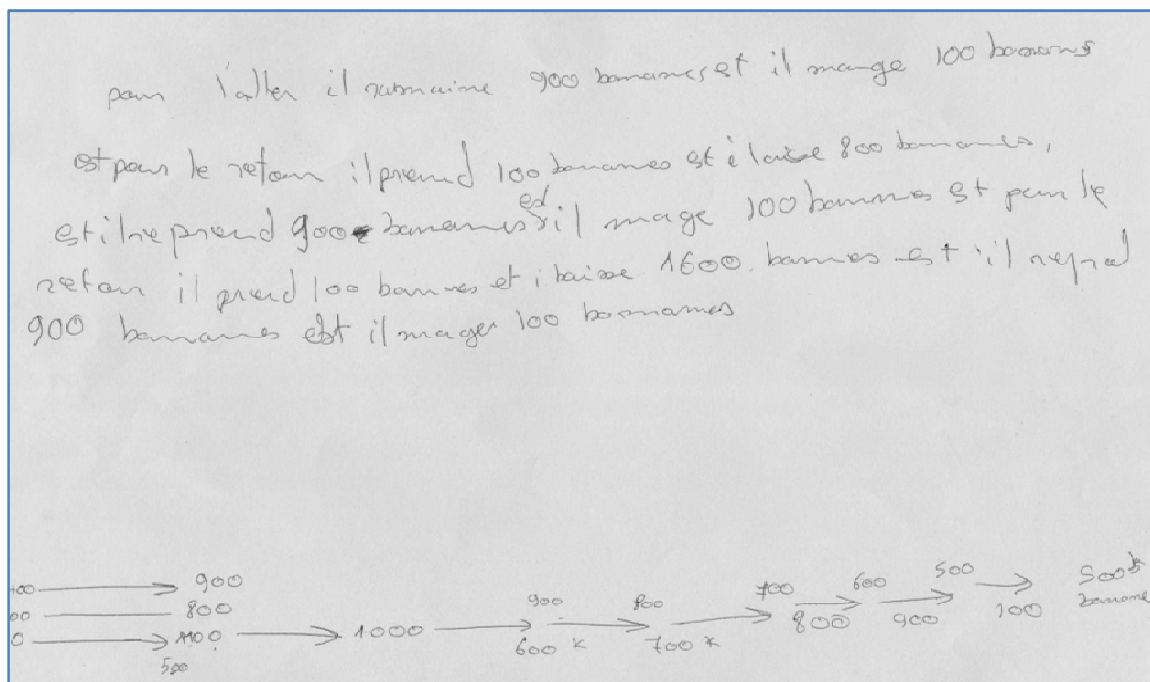 pour l'aller il ramaine 900 bananes et il mange 100 banans
est pour le retour il prend 100 bananes et i laise 800 bananes,
et il reprend 900 bananes et il mage 100 bannes est pour le
retour il prend 100 bannes et i laisse 1600 bannes est il reprend
900 bananes est il mager 100 bananes
900
800
1100
500
1000
900
600 *
800
700 *
700
800
600
900
500
100
500 b
banane